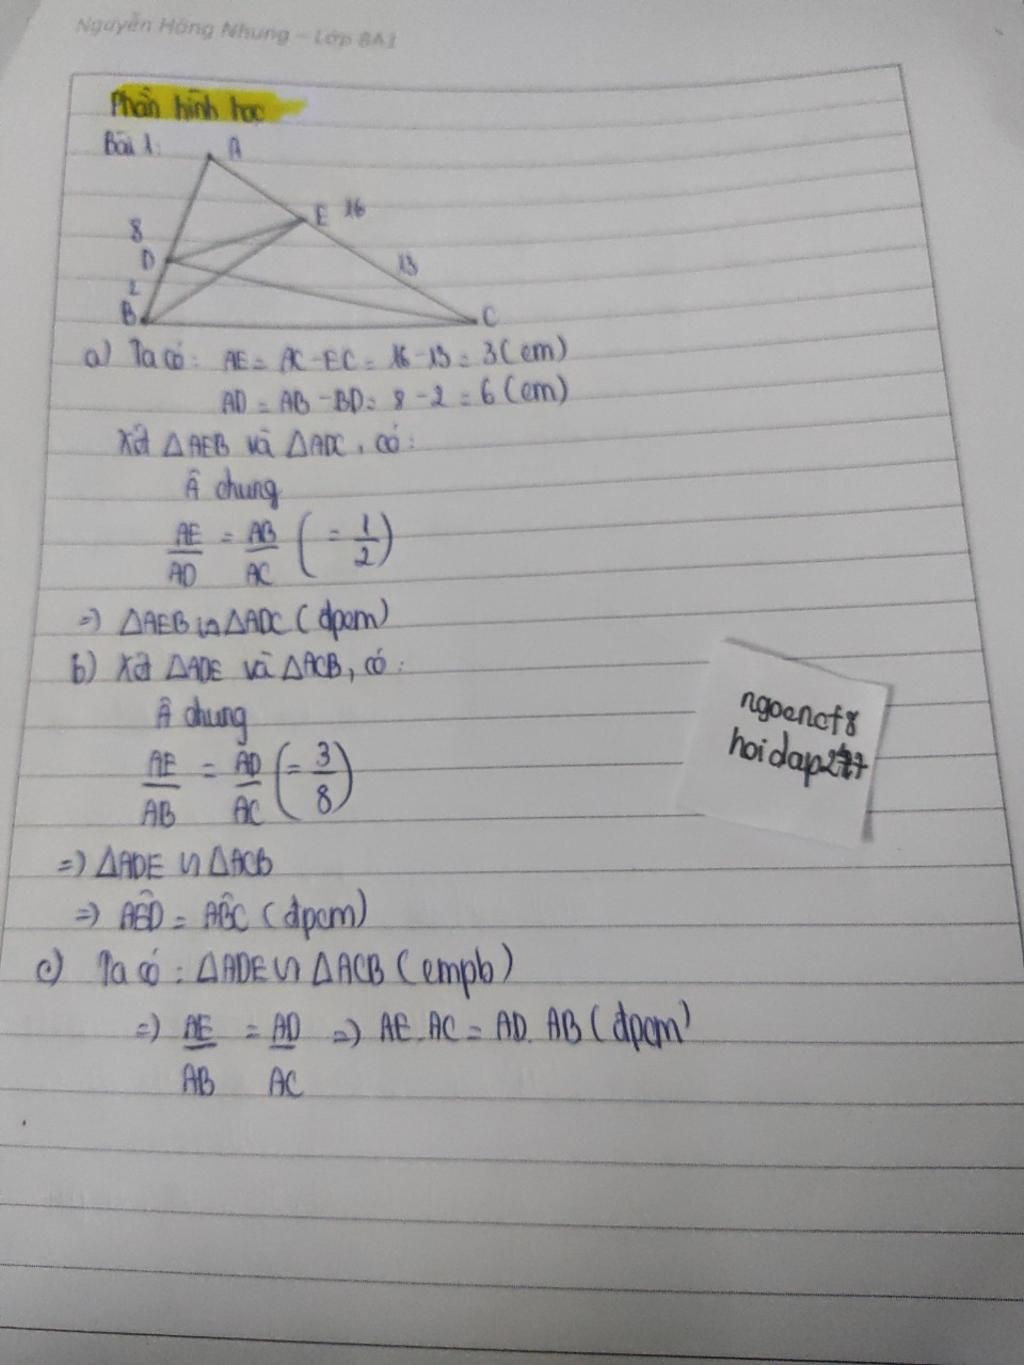 Nguyễn Hồng Nhung – Lớp 8A1
Phần hình học
Bài 1:
A
E 16
8
D
13
2
B
C
a) Ta có: AE = AC - EC = 16 - 13 = 3 (cm)
AD = AB - BD = 8 - 2 = 6 (cm)
Xét △AEB và △ADC, có:
Â chung
AE/AD = AB/AC (= 1/2)
=) △AEB ∽ △ADC (đpcm)
b) Xét △ADE và △ACB, có:
Â chung
AE/AB = AD/AC (= 3/8)
=) △ADE ∽ △ACB
=) AÊD = AB̂C (đpcm)
c) Ta có: △ADE ∽ △ACB (cmpb)
=) AE/AB = AD/AC =) AE.AC = AD.AB (đpcm)
ngocncf8